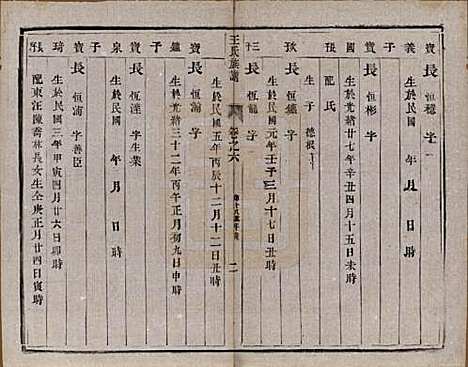 寶長恒穩字
義 生於民國 年 月 日 時
子
寶長恒彬字
國 生於光緒廿七年辛丑四月十五日未時
配 氏
子
長恒鑑字德根
生於民國元年壬子三月十七日丑時
三長恒龍字
子
王氏族譜 卷之六 二
生於民國五年丙辰十二月十二日丑時
寶長恒滿字
鑑 生於光緒三十二年丙午正月初九日申時
子
寶長恒達字生業
泉 生於民國 年 月 日 時
子
長恒濤字善臣
琦 生於民國三年甲寅四月廿六日卯時
配東汪陳喬林長女生仝庚正月廿四日寅時